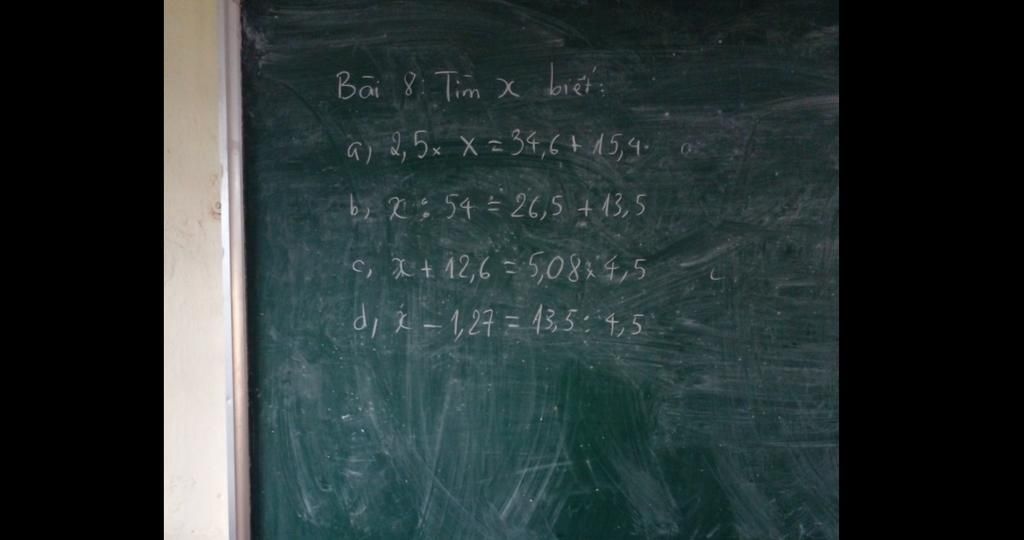 Bài 8: Tìm x biết:
a, 2,5 x X = 34,6 + 15,4
b, x : 54 = 26,5 + 13,5
c, x + 12,6 = 5,08 x 4,5
d, x - 1,27 = 13,5 : 4,5